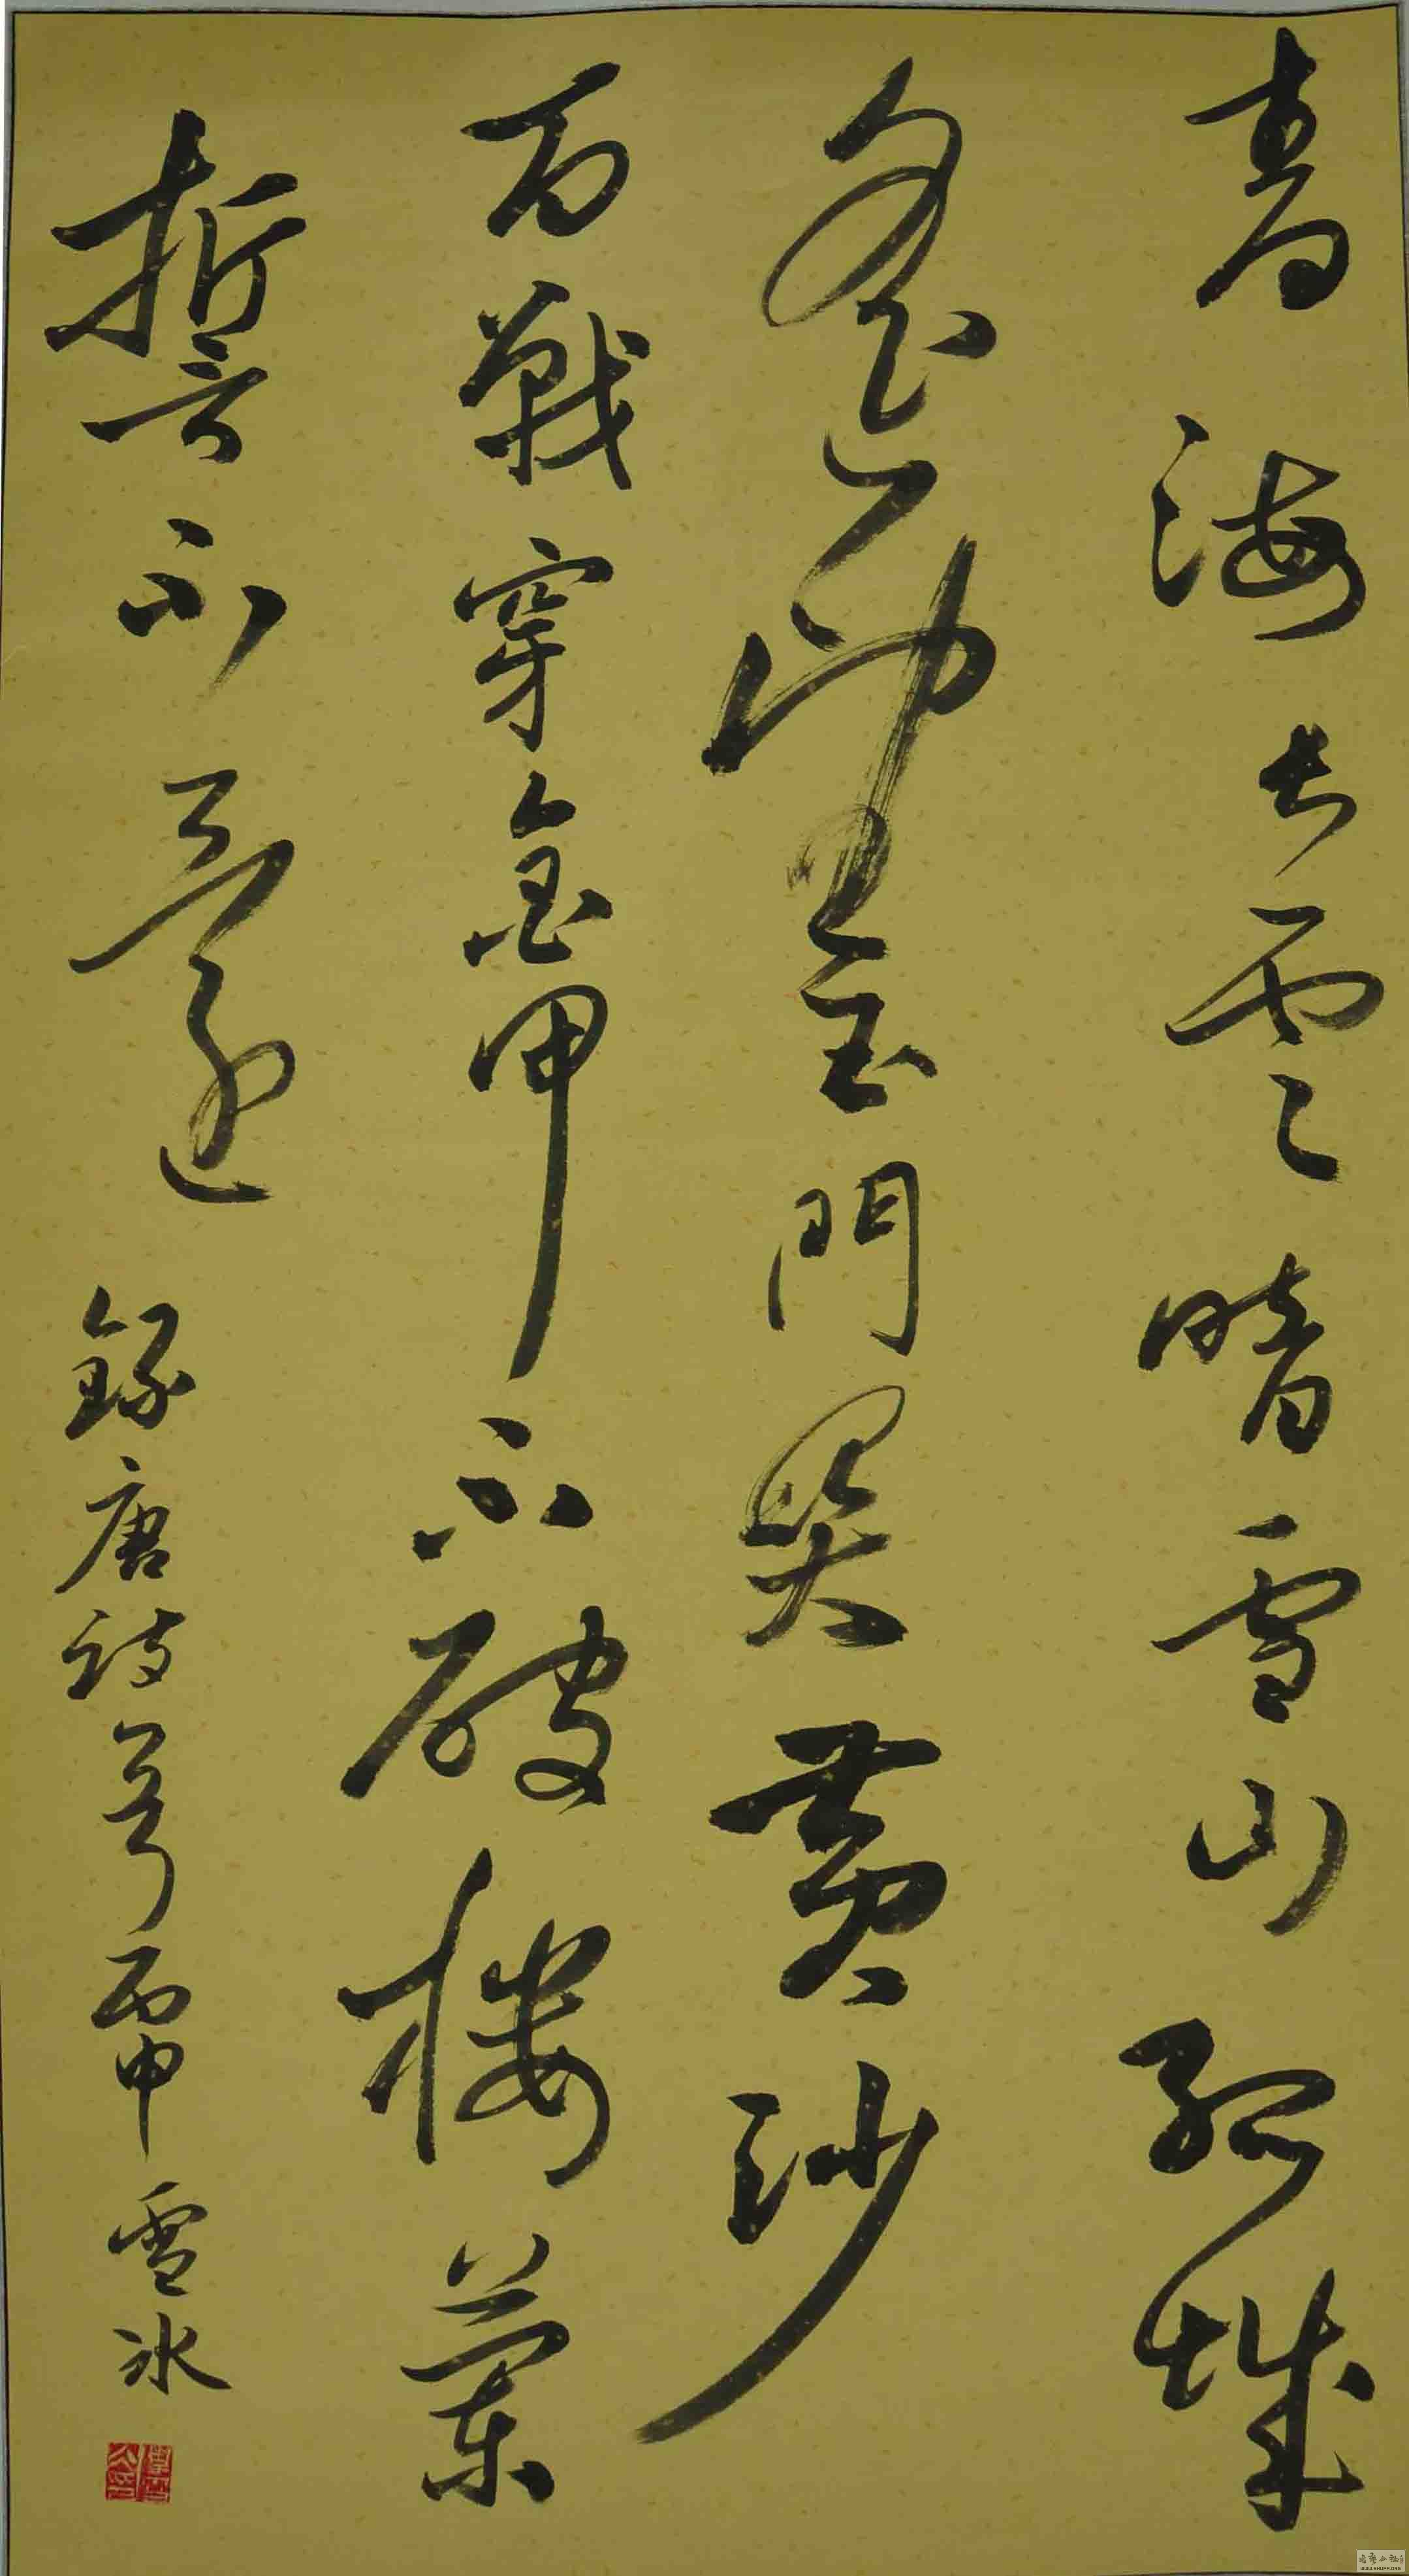 青海长雲暗雪山孤城
遙望玉門關黃沙
百戰穿金甲不破樓蘭
誓不還 錄唐詩 丙申 雪冰
WWW.SHUFA.ORG